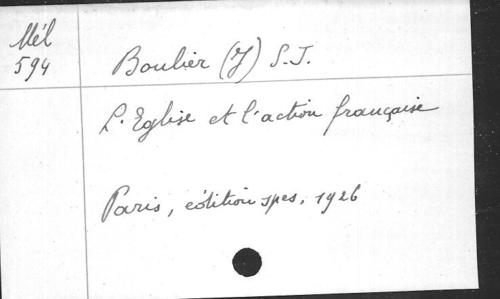 Mél
594
Boulier (J) S.J.
L'Eglise et l'action française
Paris, édition spes, 1926